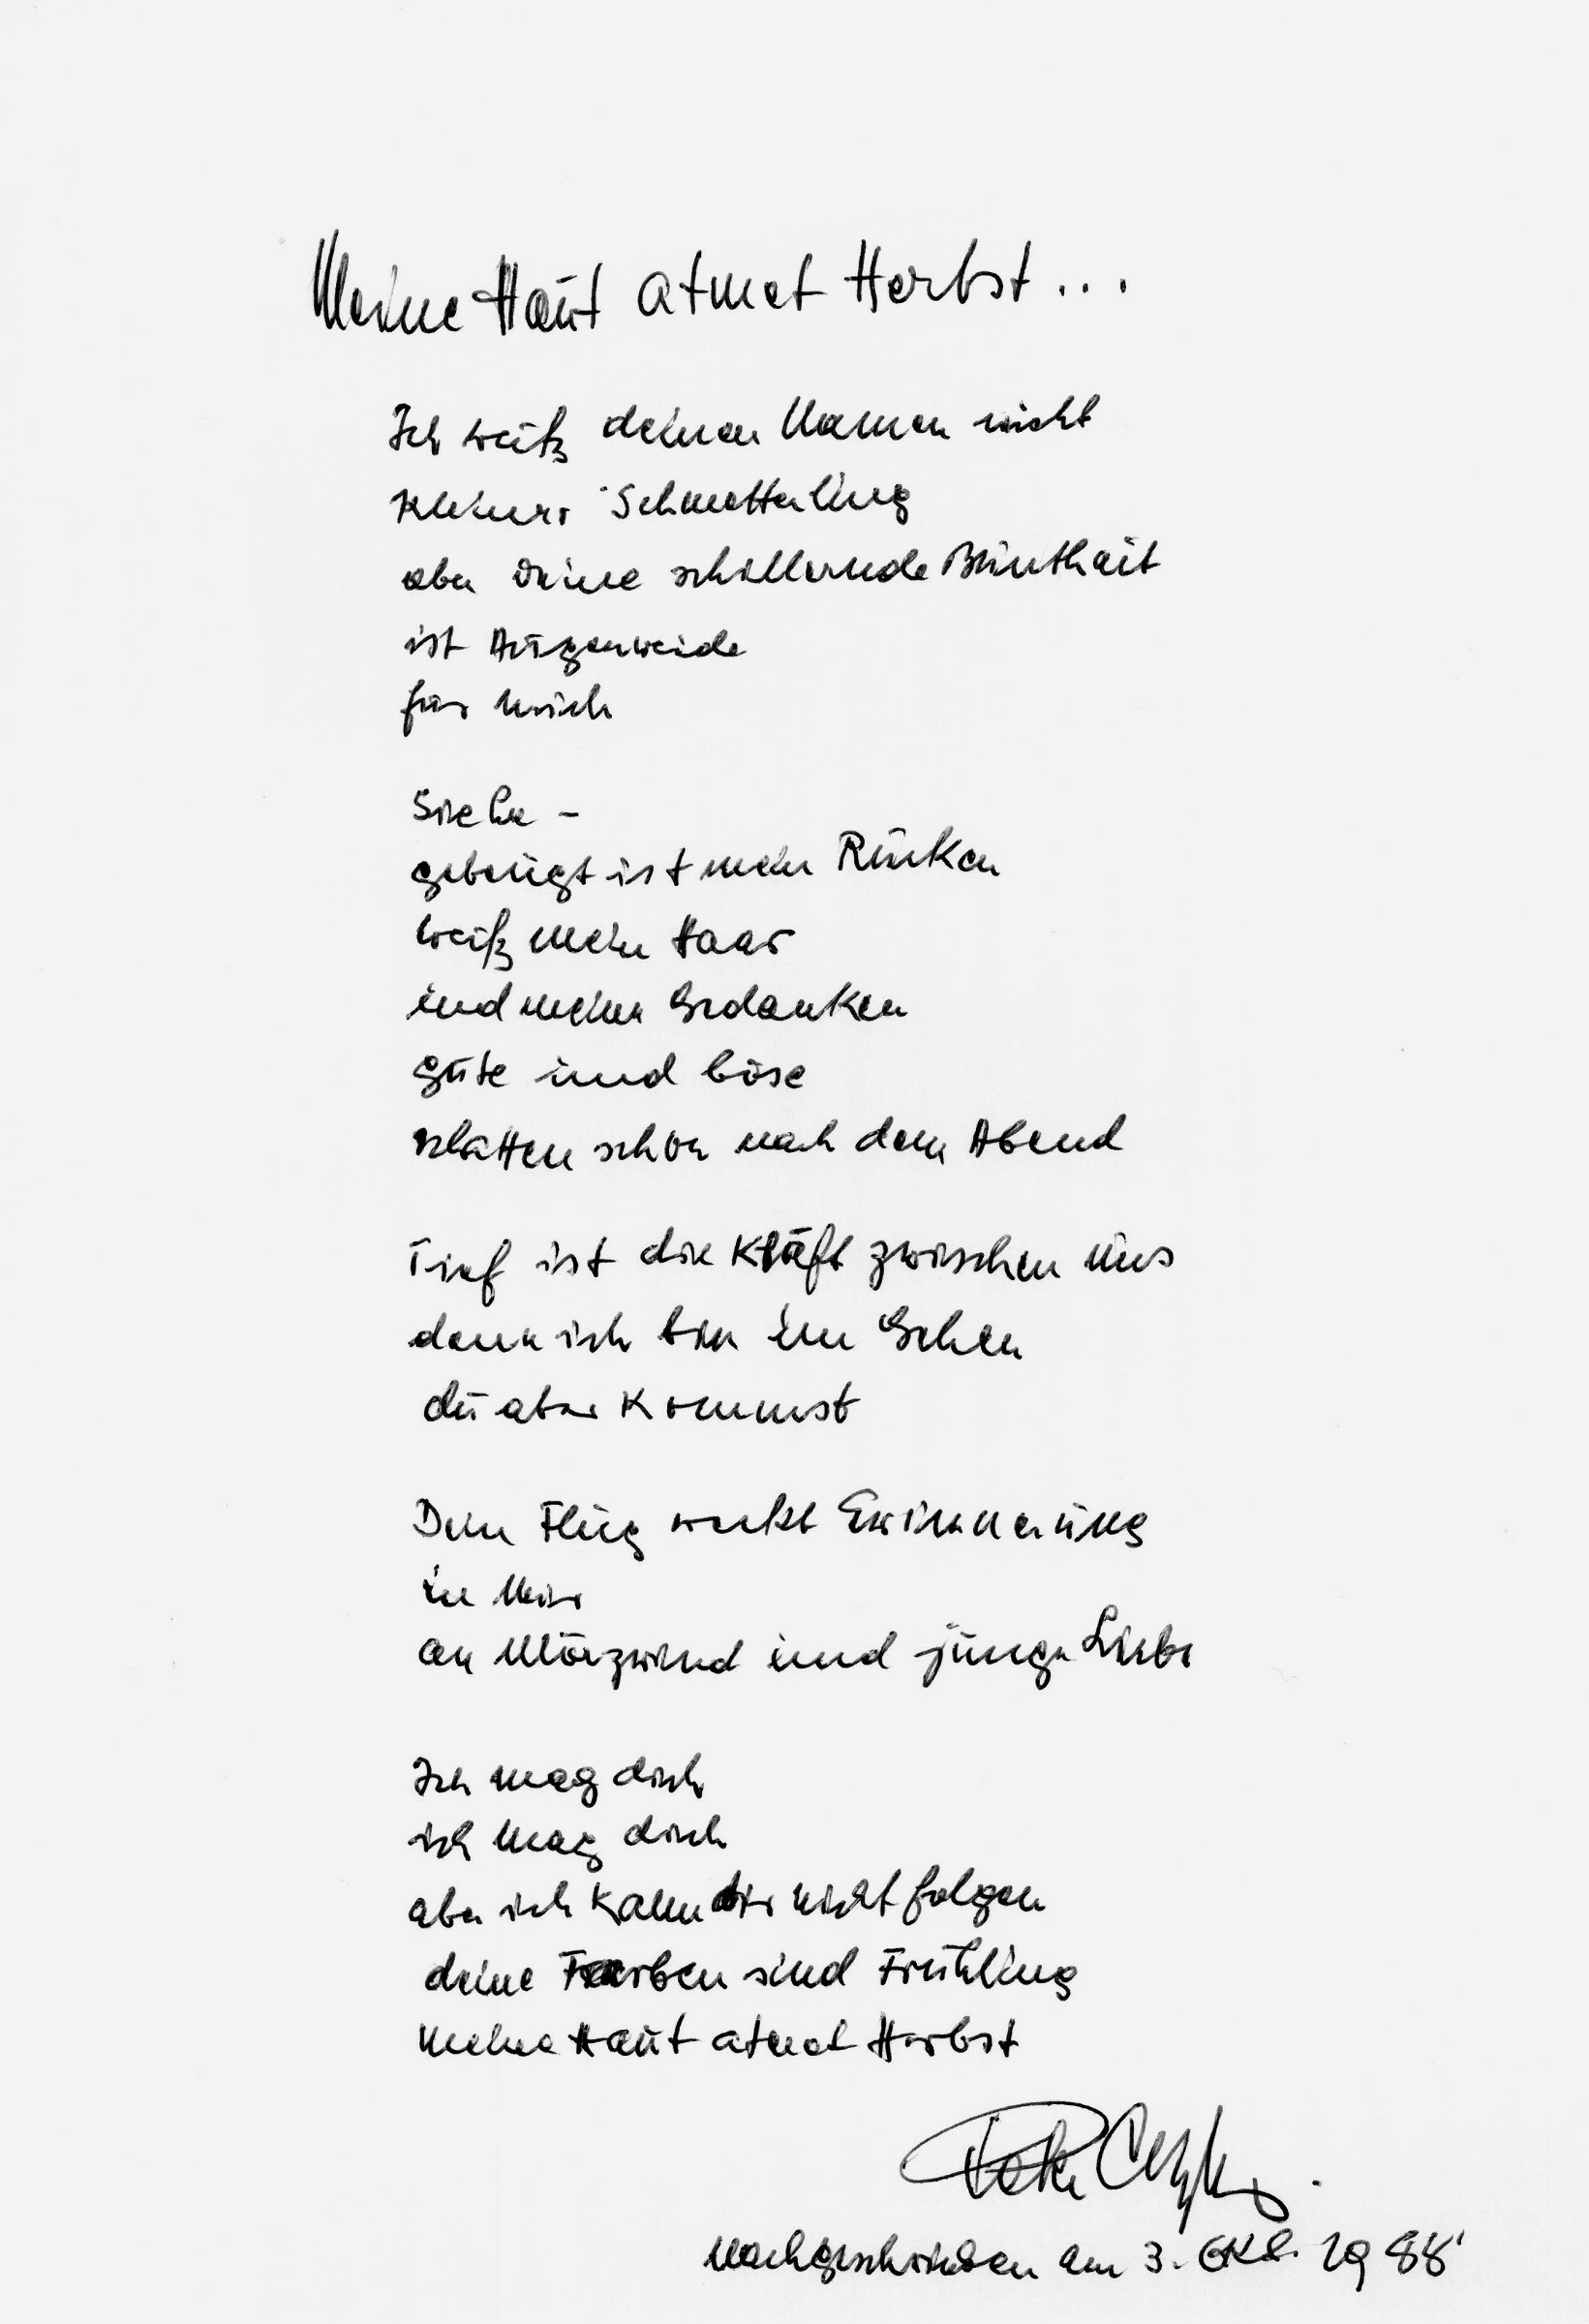 Meine Haut atmet Herbst...
Ich weiß deinen Namen nicht
kleiner Schmetterling
aber deine schillernde Buntheit
ist Augenweide
für mich
Siehe –
gebeugt ist mein Rücken
weiß mein Haar
und meine Gedanken
gute und böse
schatten schon nach dem Abend
Tief ist die Kluft zwischen uns
denn ich bin im Gehen
du aber kommst
Dein Flug weckt Erinnerung
in mir
an Märzwind und junge Liebe
Ich mag dich
ich mag dich
aber ich kann dir nicht folgen
deine Farben sind Frühling
meine Haut atmet Herbst
Peter
Nachgeschrieben am 3. Okt. 1988